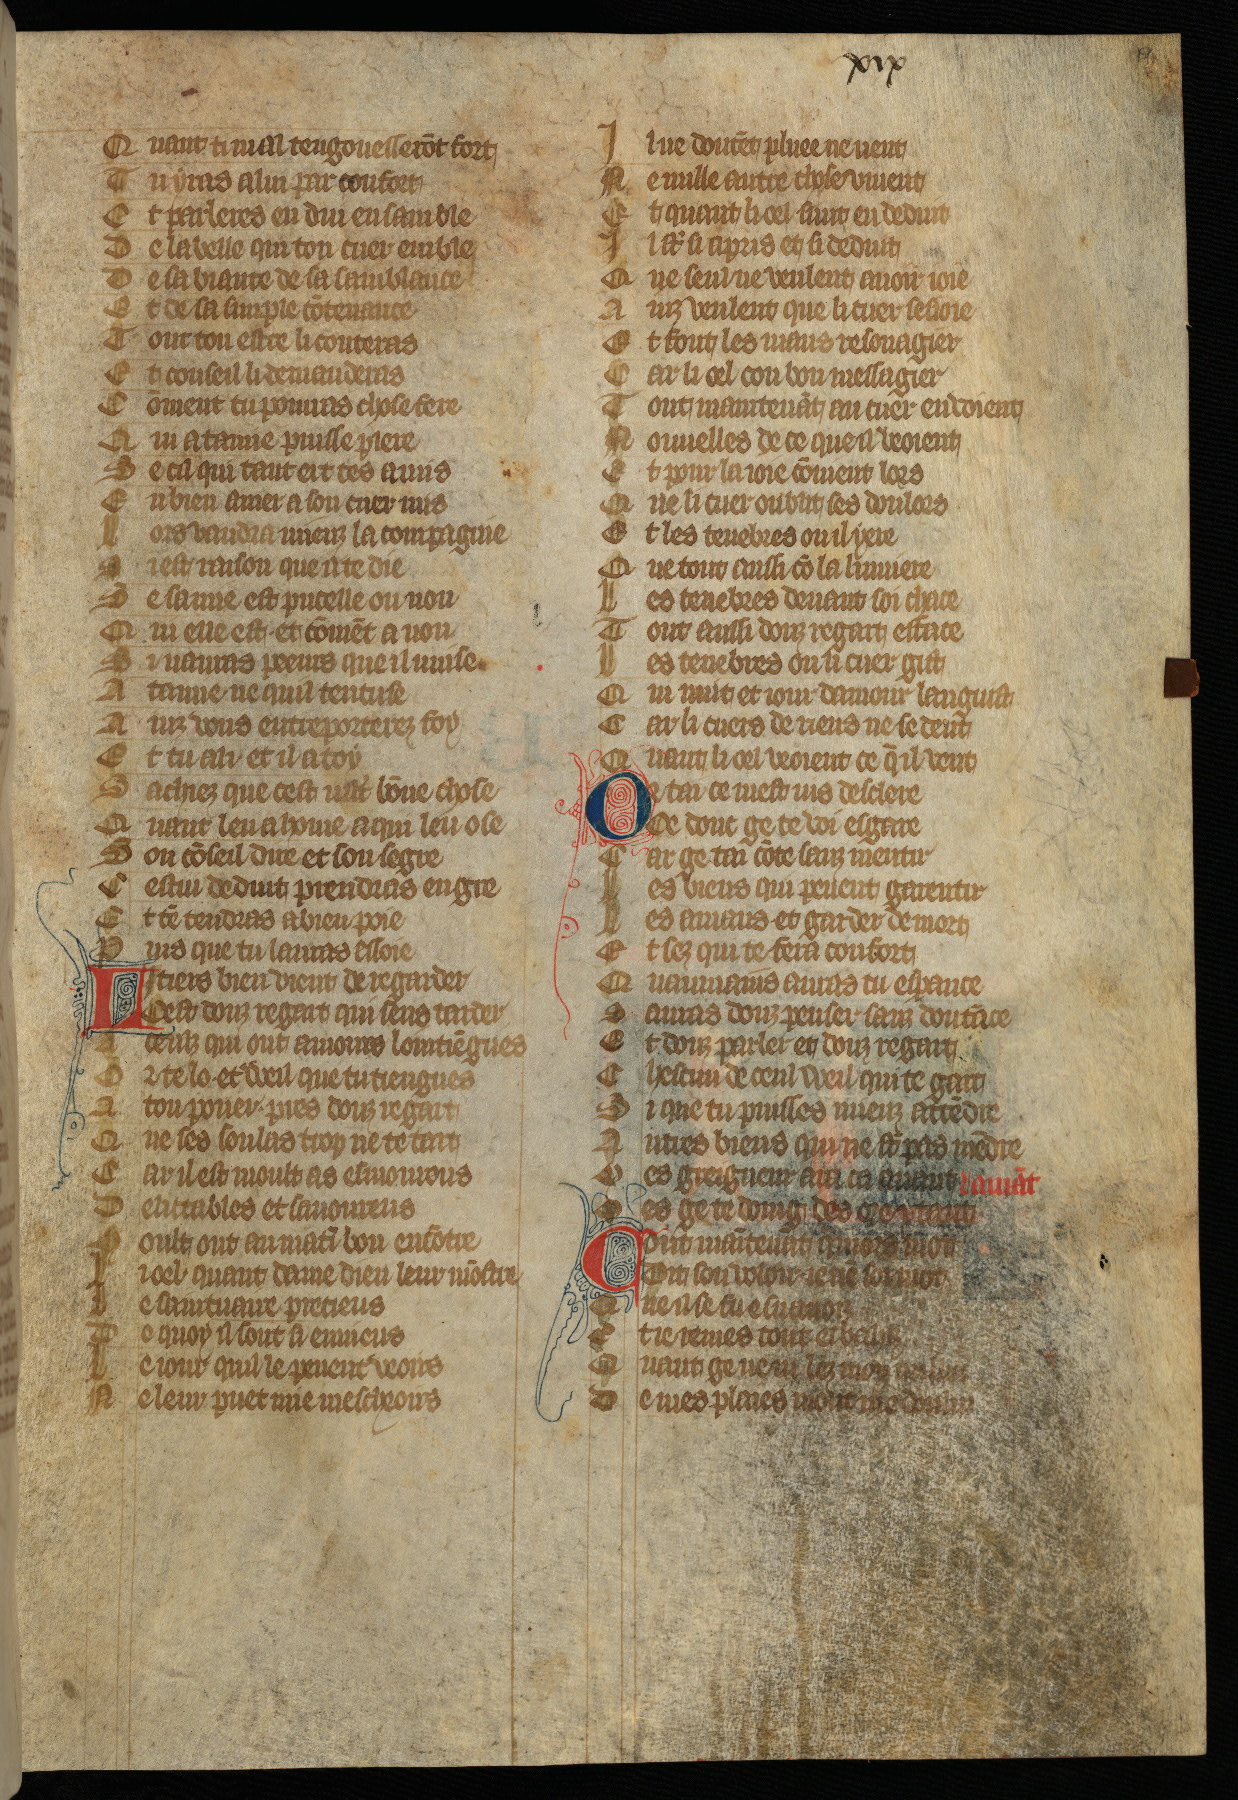 xix
Quant ti mal tengoisserōt fort
Tu yras a lui par confort
Et parleres en dui ensamble
De la belle qui ton cuer emble
De sa biaute de sa samblance
Et de sa simple cōtenance
Tout ton estre li conteras
Et conseil li demanderas
Cōment tu pourras chose fere
Qui a tamie puisse plere
Se cil qui tant ert tes amis
En bien amer a son cuer mis
Lors vaudra mieuz la compagnie
Si est raison que il te die
Se samie est pucelle ou non
Qui elle est et cōmēt a non
Si nauras peeurs que il muse
A tamie ne quil tencuse
Ainz vous entreporterez foy
Et tu a li et il a toy
Sachiez que cest mlt bōne chose
Quant len a home a qui len ose
Son cōseil dire et son segre
Cestui deduit prendras en gre
Et tē tendras a bien poie
Puis que tu lauras essoie
Li tiers bien vient de regarder
Cest douz regart qui seus tarder
A ceuz qui ont amours lointiēgnes
Or te lo et vueil que tu tiengnes
A ton pouer pres douz regart
Que ses soulas trop ne te tart
Car il est moult as esmourous
Delitables et savoureus
Moult ont au matī bon encōtre
Li oel quant dame dieu leur mōstre
Le saintuaire precieus
De quoy il sont si envieus
Le iour quil le peuent veoirs
Ne leur puet mie mescheoirs
Il ne doutēt pluee ne vent
Ne nulle autre chose vivent
Et quant li oel sunt en deduit
Il sōt si apris et si deduit
Que seul ne veulent avoir ioie
Ainz veulent que li cuer sesioie
Et font les maus resouagier
Car li oel con bon messagier
Tout maintenāt au cuer envoient
Nouvelles de ce que il voient
Et pour la ioie cōment lors
Que li cuer oublit ses doulors
Et les tenebres ou il yere
Que tout aussi cō la lumiere
Les tenebres devant soi chace
Tout aussi douz regart efface
Les tenebres ou li cuer gist
Qui nuit et iour damour languist
Car li cuers de riens ne se deut
Quant li oel voient ce q̄ il veut
Or tai ce mest vis desclere
Ce dont ge te voi esgare
Car ge tai cōte sanz mentir
Les biens qui peuent garentir
Les amans et garder de mort
Et sez qui te fera confort
Quaumains auras tu esperance
Sauras douz penser sanz doutāce
Et douz parler et douz regart
Chescun de ceul vueil qui te gart
Si que tu puisses mieuz attēdre
Autres biens qui ne sōt pas mēdre
Les greigneur aura ca avant
Des ge te doing des
lamāt
Tout maintenant amors mot
Dit son voloir
Que il se fu esvanoiz
Et ie remes
Quant ge ne vi lez moy
De mes plaies moult me dolui